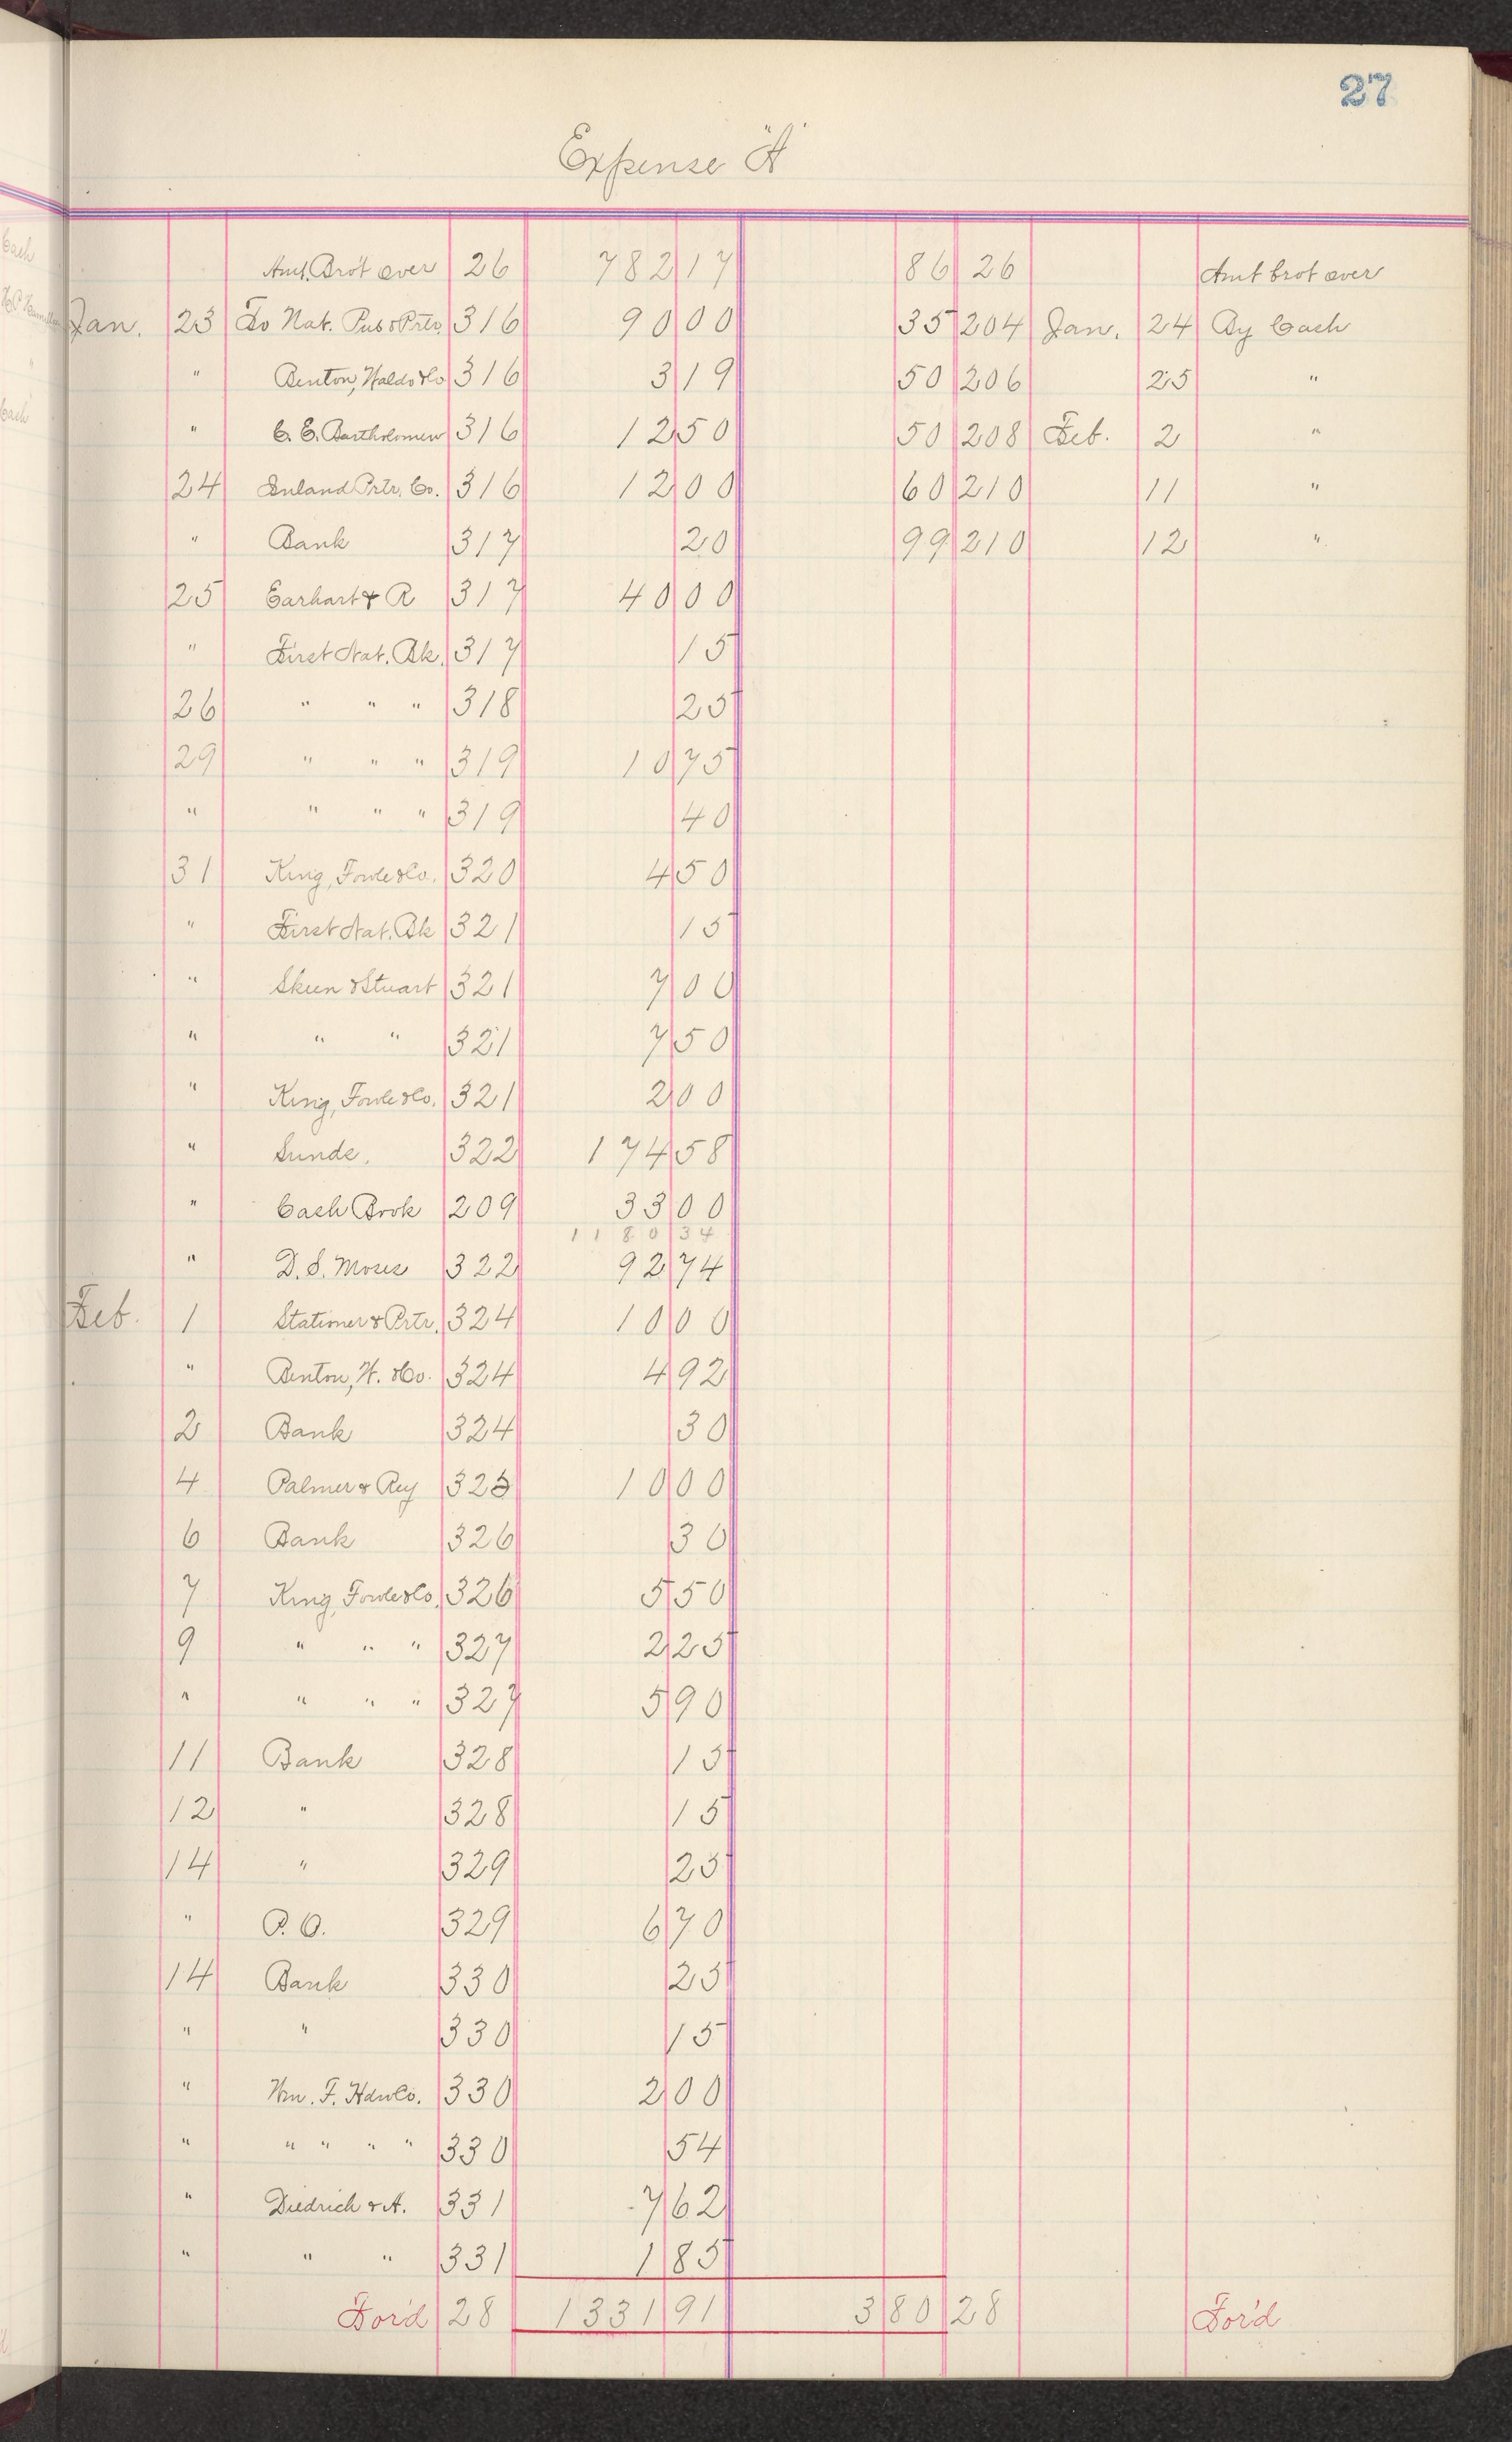 27
Expense "A"
Amt. Brot over 26 782 17 86 26 Amt brot over
Jan. 23 To Nat. Pub & Prtr. 316 90 00 35 204 Jan. 24 By Cash
" Benton, Waldo & Co 316 3 19 50 206 25 "
" C. E. Bartholomew 316 12 50 50 208 Feb. 2 "
24 Inland Prtr. Co. 316 12 00 60 210 11 "
" Bank 317 20 99 210 12 "
25 Earhart & R 317 40 00
" First Nat. Bk. 317 15
26 " " " 318 25
29 " " " 319 10 75
" " " " 319 40
31 King, Fowle & Co. 320 4 50
" First Nat. Bk 321 15
" Skeen & Stuart 321 7 00
" " " 321 7 50
" King, Fowle & Co. 321 2 00
" Sunds. 322 174 58
" Cash Book 209 33 00
1180 34
" D. S. Moses 322 92 74
Feb. 1 Stationer & Prtr. 324 10 00
" Benton, W. & Co. 324 4 92
2 Bank 324 30
4 Palmer & Rey 325 10 00
6 Bank 326 30
7 King, Fowle & Co. 326 5 50
9 " " " 327 2 25
" " " " 327 5 90
11 Bank 328 15
12 " 328 15
14 " 329 25
" P. O. 329 6 70
14 Bank 330 25
" " 330 15
" Wm. F. Hdw Co. 330 2 00
" " " " " 330 54
" Diedrich & A. 331 7 62
" " " 331 1 85
For'd 28 1331 91 380 28 For'd